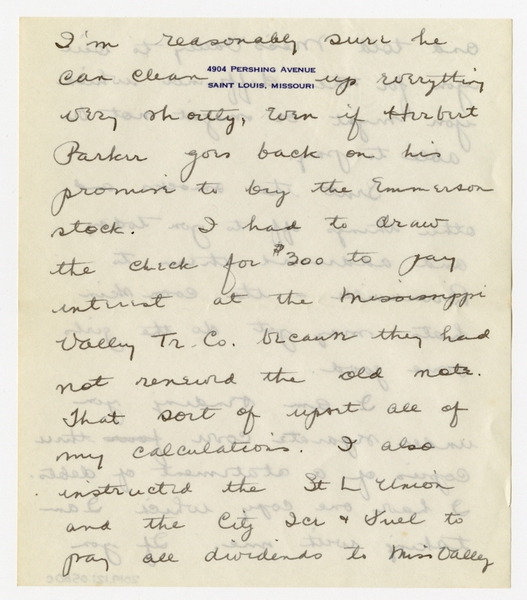 I'm reasonably sure he
4904 PERSHING AVENUE
SAINT LOUIS, MISSOURI
can clean up everything
very shortly, even if Herbert
Parker goes back on his
promise to buy the Emmerson
stock. I had to draw
the check for $300 to pay
interest at the Mississippi
Valley Tr. Co. because they had
not renewed the old note.
That sort of upset all of
my calculations. I also
instructed the St L Union
and the City Ice & Fuel to
pay all dividends to Miss Valley